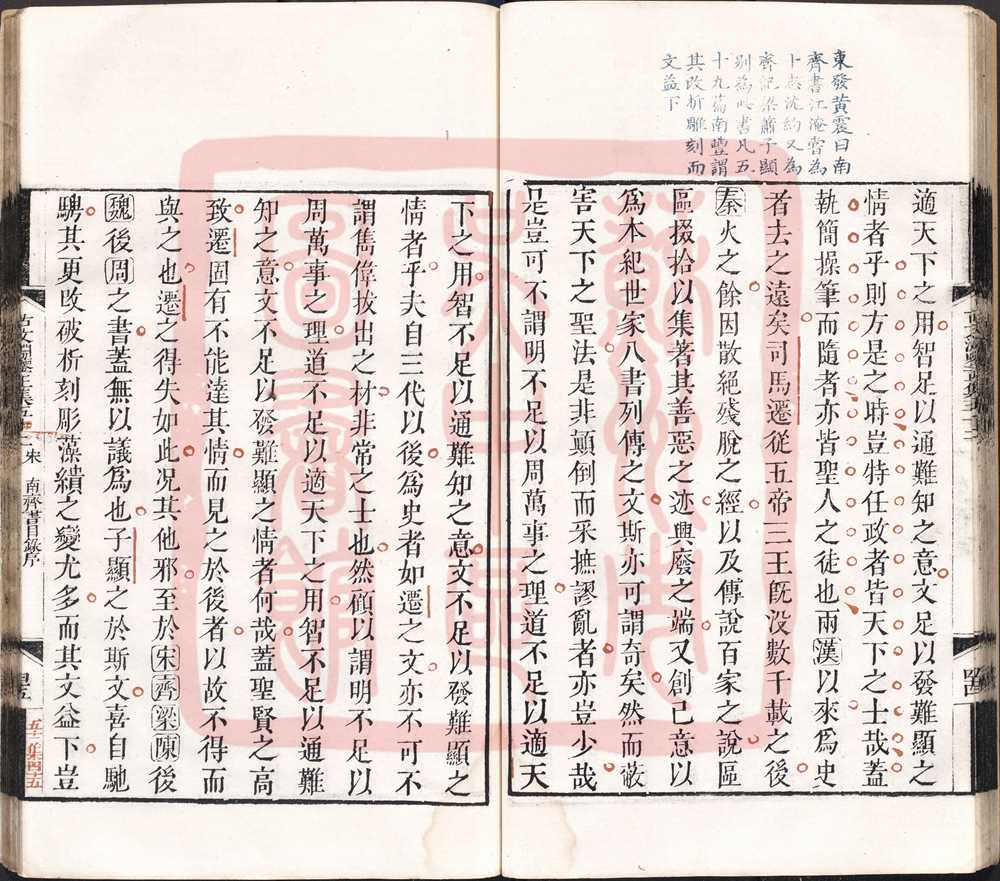 東發黃震曰南
齊書江淹嘗為
十志沈約又為
齊紀梁蕭子顯
別為此書凡五
十九篇南豐謂
其改折雕刻而
文益下
適天下之用智足以通難知之意文足以發難顯之
情者乎則方是之時豈特任政者皆天下之士哉蓋
執簡操筆而隨者亦皆聖人之徒也兩漢以來爲史
者去之遠矣司馬遷從五帝三王旣沒數千載之後
秦火之餘因散絕殘脫之經以及傳說百家之說區
區掇拾以集著其善惡之迹興廢之端又創己意以
爲本紀世家八書列傳之文斯亦可謂奇矣然而蔽
害天下之聖法是非顛倒而采摭謬亂者亦豈少哉
是豈可不謂明不足以周萬事之理道不足以適天
下之用智不足以通難知之意文不足以發難顯之
情者乎夫自三代以後爲史者如遷之文亦不可不
謂雋偉拔出之材非常之士也然顧以謂明不足以
周萬事之理道不足以適天下之用智不足以通難
知之意文不足以發難顯之情者何哉蓋聖賢之高
致遷固有不能達其情而見之於後者以故不得而
與之也遷之得失如此况其他邪至於宋齊梁陳後
魏後周之書蓋無以議爲也子顯之於斯文喜自馳
騁其更改破析刻彫藻繢之變尤多而其文益下豈
宋 南齊書目錄序